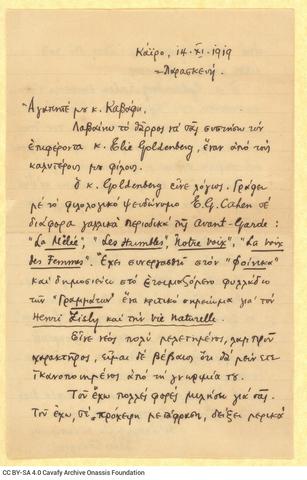 Κάϊρο, 14. XI. 1919
Παρασκευή.
Ἀγαπητέ μου κ. Καβάφη,
Λαβαίνω τὸ θάρρος νὰ σᾶς συστήσω τὸν
ἐπιφέροντα κ. Elie Goldenberg, ἕναν ἀπὸ τοὺς
καλυτέρους μου φίλους.
Ὁ κ. Goldenberg εἶνε λόγιος. Γράφει
μὲ τὸ φιλολογικὸ ψευδώνυμο E. G. Calen σὲ
διάφορα γαλλικὰ περιοδικὰ τῆς Avant-Garde :
"La Mêlée", "des Humbles", Notre voix", "La voix
des Femmes". Ἔχει συνεργασθῆ στὸν "Φοίνικα"
καὶ δημοσιεύει στὸ ἑτοιμαζόμενο φυλλάδιο
τῶν "Γραμμάτων" ἕνα κριτικὸ σημείωμα γιὰ τὸν
Henri Zisly καὶ τὴν vie naturelle.
Εἶνε νέος πολὺ μελετημένος, λαμπροῦ
χαρακτῆρος, εἶμαι δὲ βέβαιος ὅτι θὰ μείνετε
ἱκανοποιημένος ἀπὸ τὴ γνωριμία του.
Τοῦ ἔχω πολλὲς φορὲς μιλήσει γιὰ σᾶς.
Τοῦ ἔχω, σὲ πρόχειρη μετάφραση, δείξει μερικὰ
CC BY-SA 4.0 Cavafy Archive Onassis Foundation